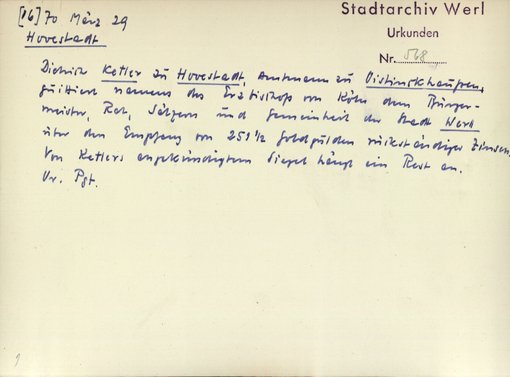 [16]70 März 29
Hovestadt
Stadtarchiv Werl
Urkunden
Nr. 568
Dietrich Ketler zu Hovestadt, Amtmann zu Oistinckhausen,
quittiert namens des Erzbischofs von Köln dem Bürger-
meister, Rat, Sälzern und Gemeinheit der Stadt Werl
über den Empfang von 251 1/2 Goldgulden rückständiger Zinsen.
Von Ketlers angekündigtem Siegel hängt ein Rest an.
Or. Pgt.